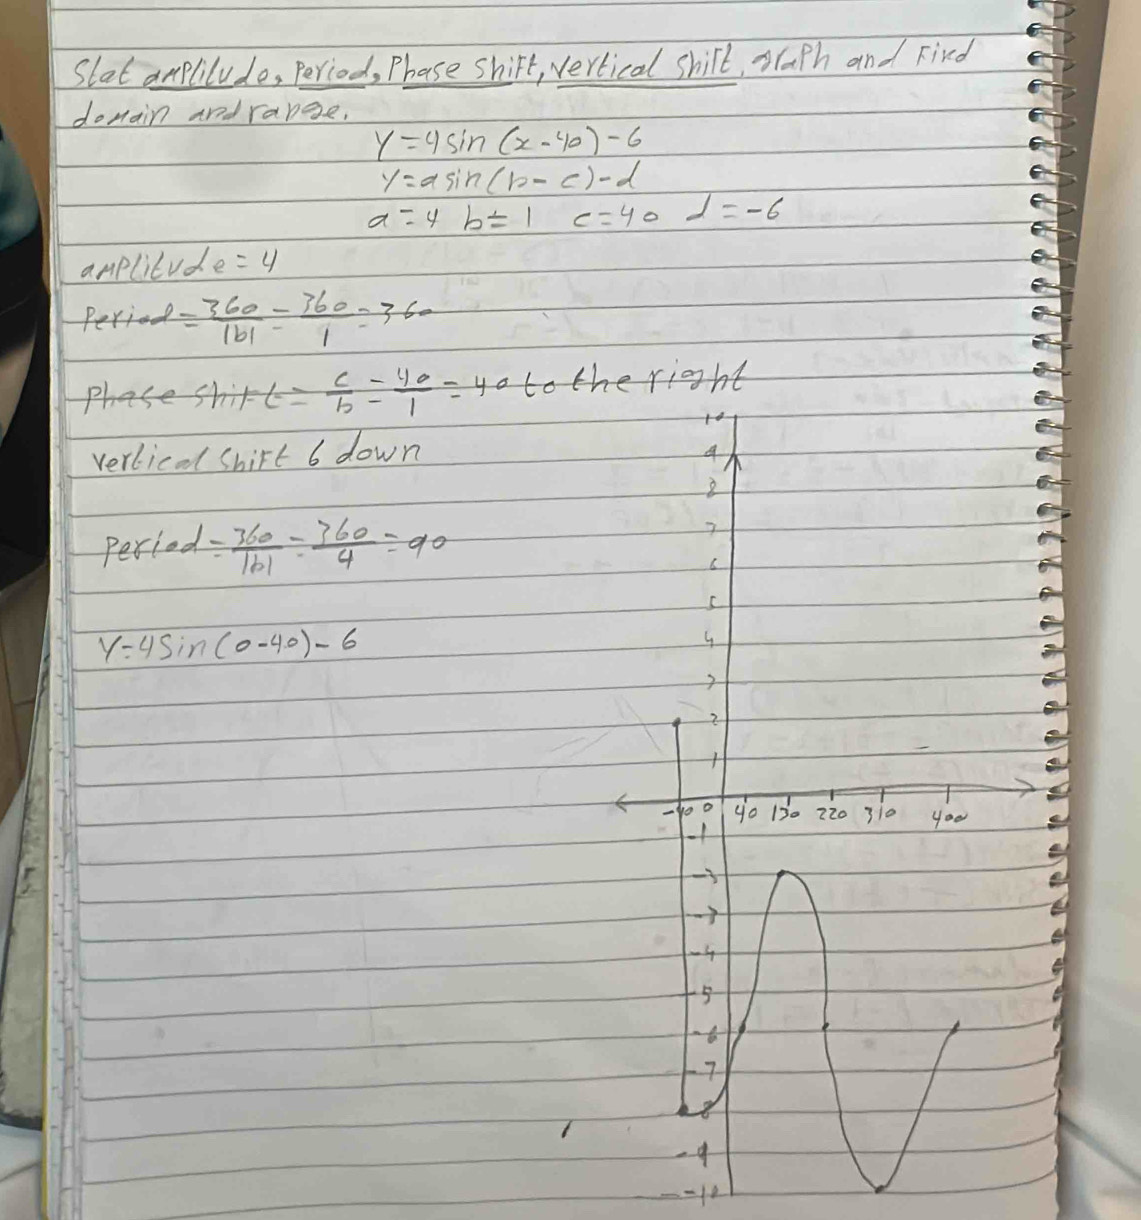 Stat amplitude, Period, Phase shift, vertical shift, graph and Find
domain and range.
Y=4sin(x-40)-6
y=asin(b-c)-d
a=4 b=1 c=40 d=-6
amplitude=4
Period=360/|b|=360/1=360
Phase shift=c/b=40/1=40 to the right
vertical shift 6 down
Period=360/|b|=360/4=90
Y=4Sin(0-40)-6
10
9
8
7
6
5
4
3
2
1
-40 0 40 130 220 310 400
-1
-3
-4
-5
-6
-7
-8
-9
-10